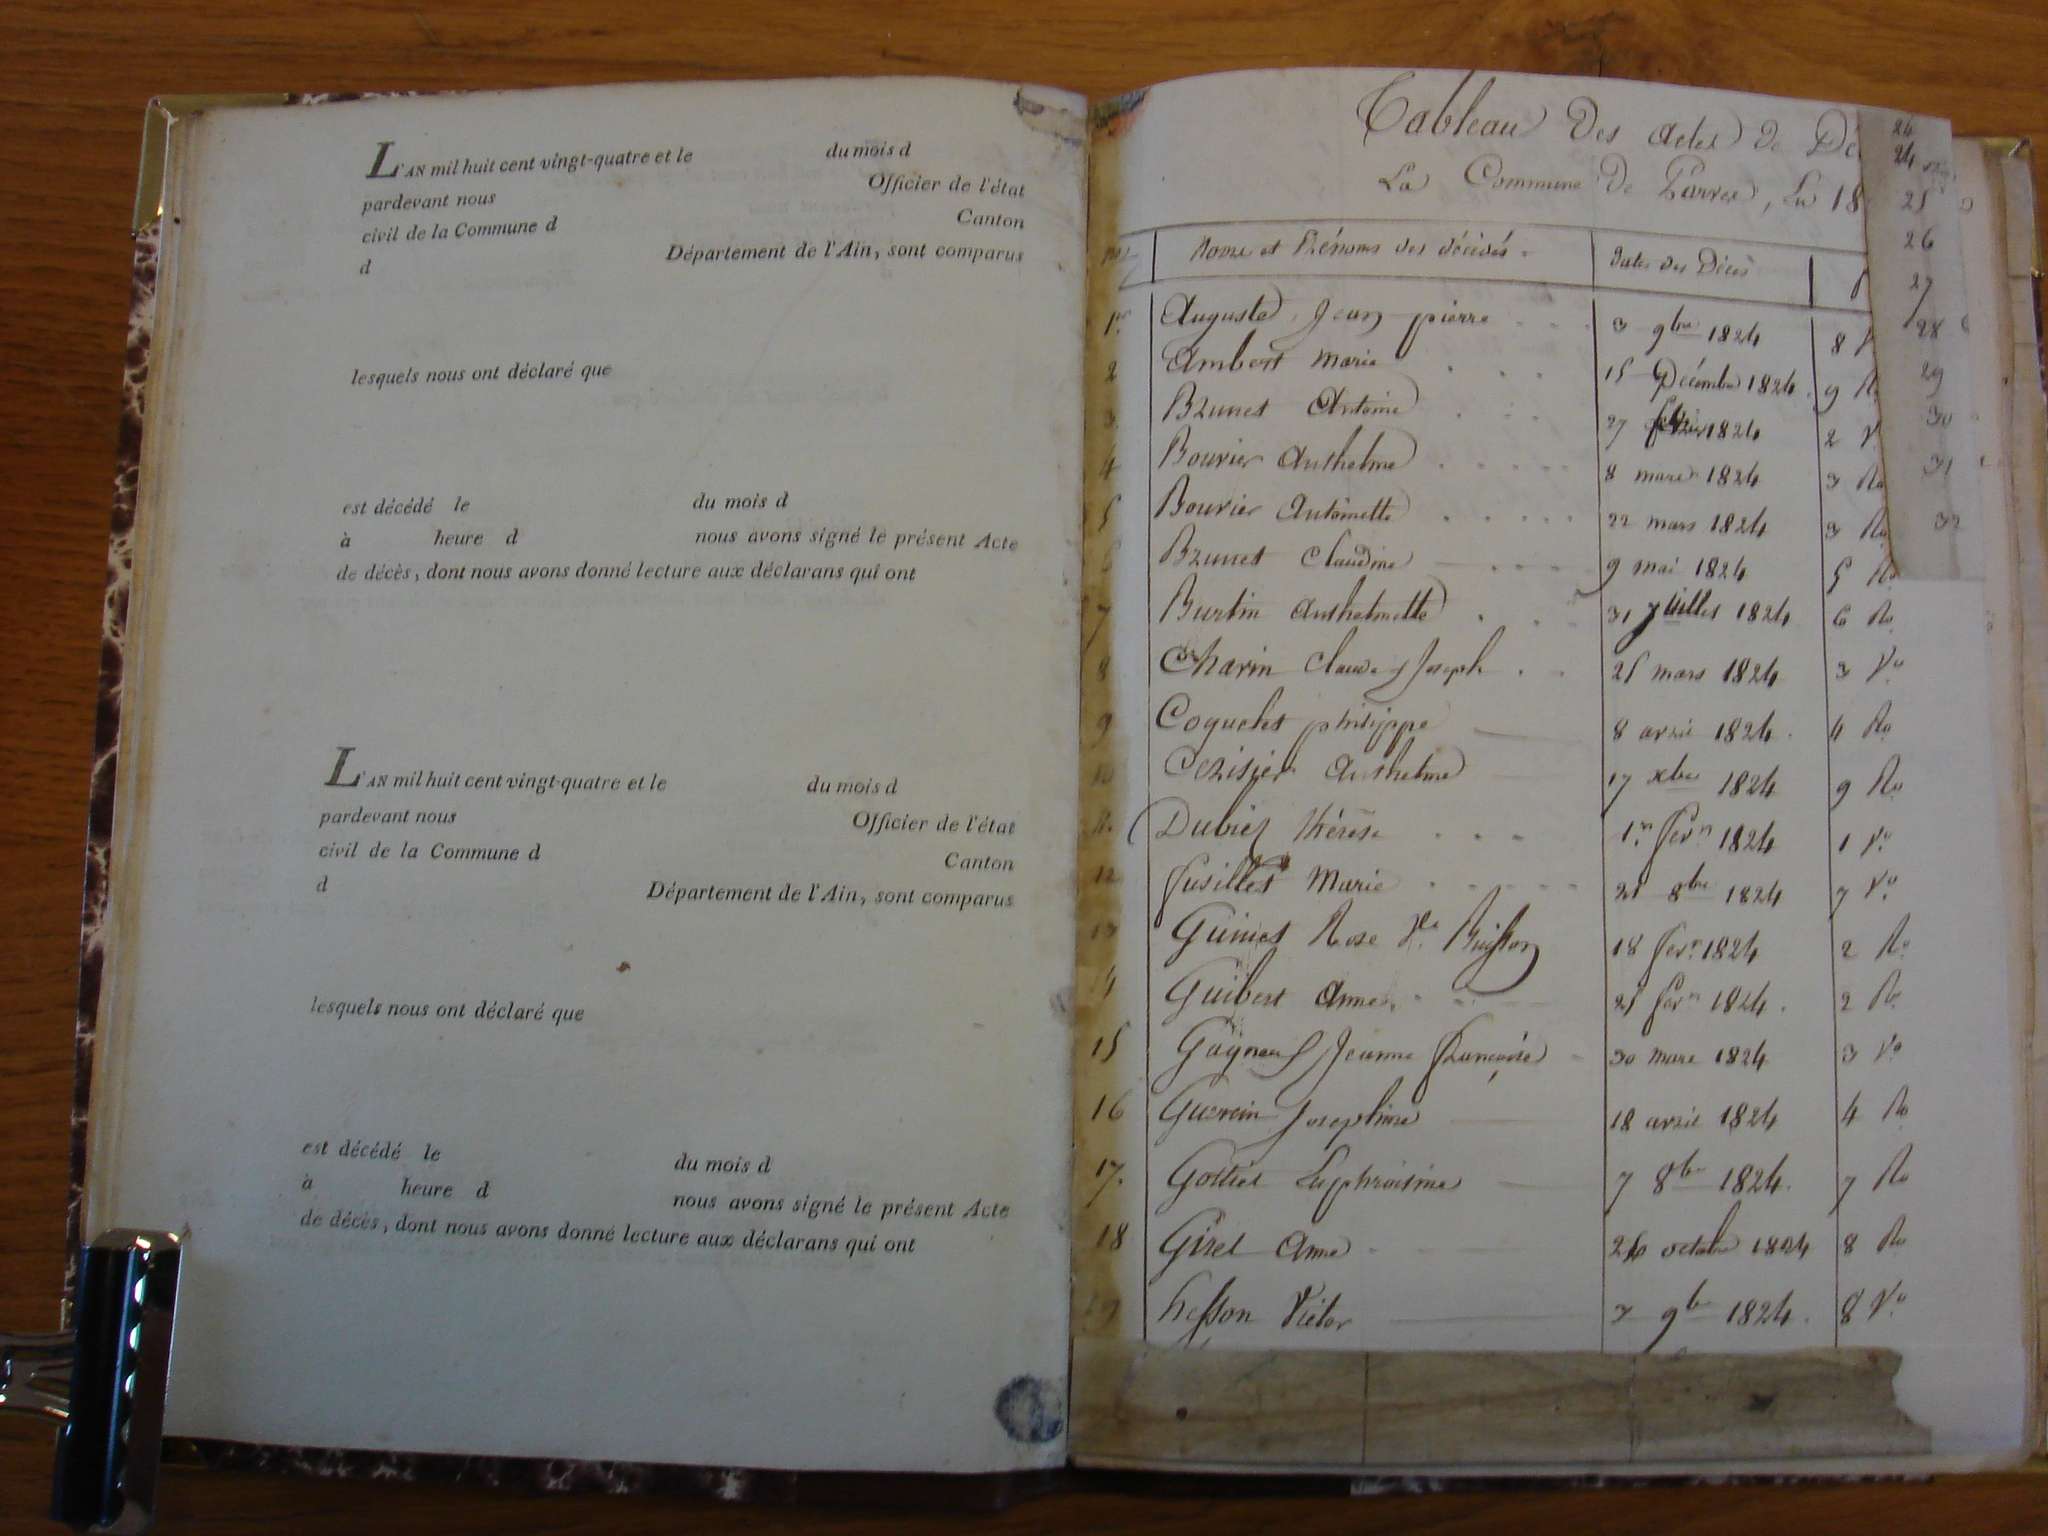 L'AN mil huit cent vingt-quatre et le du mois d
pardevant nous Officier de l'état
civil de la Commune d Canton
d Département de l'Ain, sont comparus
lesquels nous ont déclaré que
est décédé le du mois d
à heure d nous avons signé le présent Acte
de décès, dont nous avons donné lecture aux déclarans qui ont
L'AN mil huit cent vingt-quatre et le du mois d
pardevant nous Officier de l'état
civil de la Commune d Canton
d Département de l'Ain, sont comparus
lesquels nous ont déclaré que
est décédé le du mois d
à heure d nous avons signé le présent Acte
de décès, dont nous avons donné lecture aux déclarans qui ont
Tableau Des actes De Dé
La Commune De Parves, En 18
Noms et Prénoms des décédés Dates des Décès
1er Auguste Jean pierre 3 9bre 1824 8 Vo
2 Ambert Marie 15 Décembre 1824 9 Ro
3 Brunet Antoine 27 1824 2 V
4 Bouvier Anthelme 8 mars 1824 3 Ro
5 Bouvier Antoinette 22 mars 1824 3 Ro
6 Brunet Claudine 9 mai 1824 5 Ro
7 Burtin Anthelmette 31 juillet 1824 6 Ro
8 Charin Claude Joseph 25 mars 1824 3 Vo
9 Coquelet philippe 8 avril 1824 4 Ro
10 Cerisier Anthelme 17 xbre 1824 9 Ro
Dubiez thérèse 1er fevr 1824 1 Vo
12 fusillet Marie 21 8bre 1824 7 Vo
13 Guinet Rose Ve Buisson 18 fevr 1824 2 Ro
14 Guibert Anne 25 fevr 1824 2 Ro
15 Jeanne françoise 30 mars 1824 3 Vo
16 Guerrin Josephine 18 avril 1824 4 Ro
17. Gottiet Euphroisine 7 8bre 1824 7 Ro
18 Girel Anne octobre 1824 8 Ro
19 hesson Victor 7 9bre 1824 8 Vo
24
24
25
26
27
28
29
30
31
32